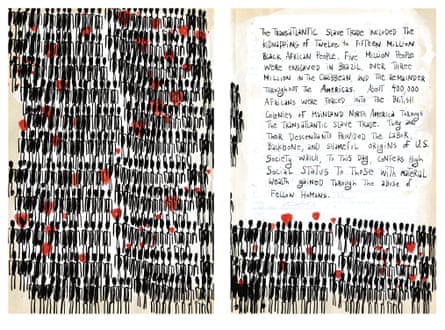 The Transatlantic Slave Trade included the
kidnapping of Twelve to Fifteen Million
Black African People. Five Million People
were enslaved in Brazil, over Three
Million in the Caribbean and the Remainder
Throughout the Americas. About 400,000
Africans were forced into the British
Colonies of Mainland North America Through
the Transatlantic Slave Trade. They and
Their Descendants Provided the Labor,
Backbone, and Shameful Origins of U.S.
Society which, To This Day, confers High
Social Status To Those with Material
Wealth gained Through the abuse of
Fellow Humans.